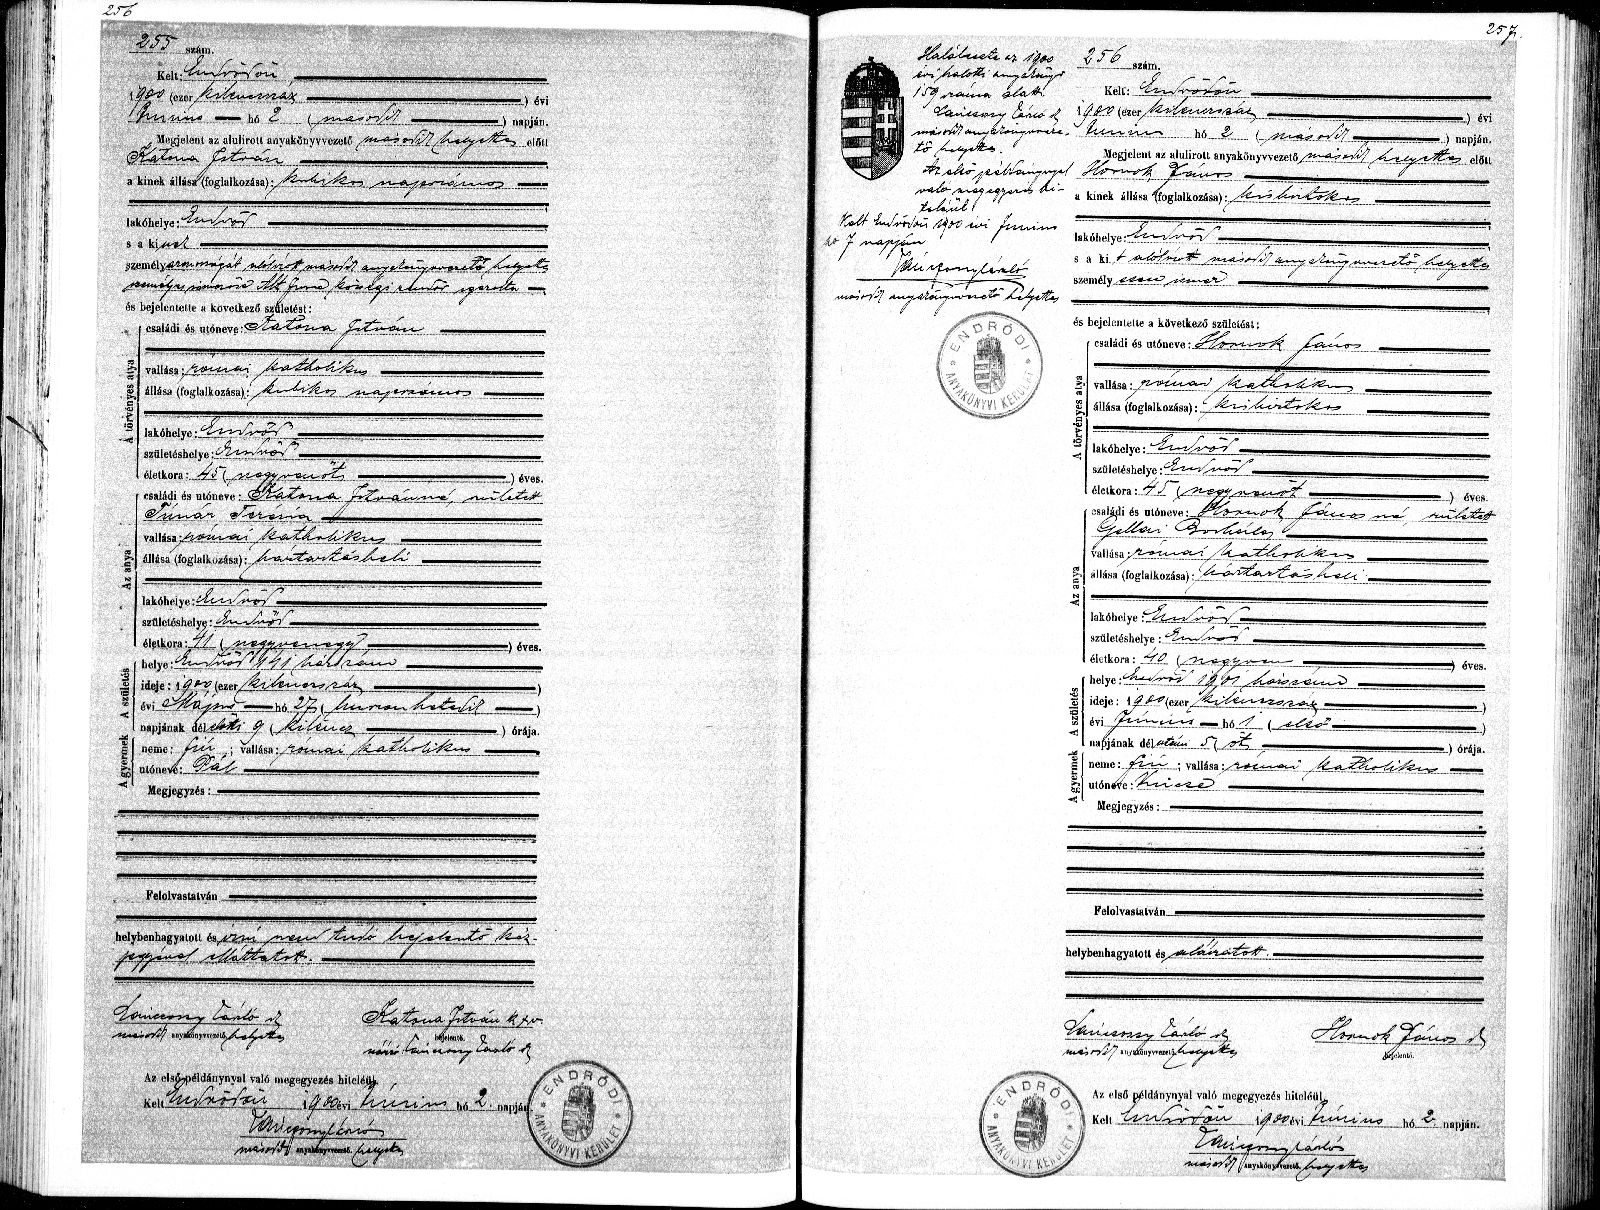 256
255 szám.
Kelt: Endrődön
1900 (ezer kilencszáz) évi
Június hó 2 (második) napján.
Megjelent az alulirott anyakönyvvezető második helyettes előtt
Katona István
a kinek állása (foglalkozása): kubikos napszámos
lakóhelye: Endrőd
s a kinek
személyazonosságát alólirott második anyakönyvvezető helyettes
személyesen ismerő községi rendőr igazolta
és bejelentette a következő születést:
A törvényes atya
családi és utóneve: Katona István
vallása: római katholikus
állása (foglalkozása): kubikos napszámos
lakóhelye: Endrőd
születéshelye: Endrőd
életkora: 45 (negyvenöt) éves.
Az anya
családi és utóneve: Katona Istvánné, született
Tímár Terézia
vallása: római katholikus
állása (foglalkozása): háztartásbeli
lakóhelye: Endrőd
születéshelye: Endrőd
életkora: 41 (negyvenegy) éves.
A születés
helye: Endrőd házszám
ideje: 1900 (ezer kilencszáz)
évi Május hó 27 (huszonhetedik)
napjának délelőtti 9 (kilencz) órája.
A gyermek
neme: fiú; vallása: római katholikus
utóneve: Pál
Megjegyzés:
Felolvastatván
helybenhagyatott és írni nem tudó bejelentő kéz-
jegyével elláttatott.
Lánczony László
második anyakönyvvezető helyettes
Katona István
bejelentő.
Az első példánynyal való megegyezés hiteléül
Kelt Endrődön 1900 évi Június hó 2. napján
második anyakönyvvezető helyettes
ENDRŐDI ANYAKÖNYVI KERÜLET
257.
Halálesete az 1900
évi halotti anyakönyv
159 száma alatt.
második anyakönyvveze-
tő helyettes.
Az első példánynyal
való megegyezés hi-
teléül
Kelt Endrődön 1900 évi Június
hó 7 napján
második anyakönyvvezető helyettes
ENDRŐDI ANYAKÖNYVI KERÜLET
256 szám.
Kelt: Endrődön
1900 (ezer kilencszáz) évi
Június hó 2 (második) napján.
Megjelent az alulirott anyakönyvvezető második helyettes előtt
Hornok János
a kinek állása (foglalkozása): kisbirtokos
lakóhelye: Endrőd
s a kit alólirott második anyakönyvvezető helyettes
személyesen ismer
és bejelentette a következő születést:
A törvényes atya
családi és utóneve: Hornok János
vallása: római katholikus
állása (foglalkozása): kisbirtokos
lakóhelye: Endrőd
születéshelye: Endrőd
életkora: 45 (negyvenöt) éves.
Az anya
családi és utóneve: Hornok Jánosné, született
Gellai Borbála
vallása: római katholikus
állása (foglalkozása): háztartásbeli
lakóhelye: Endrőd
születéshelye: Endrőd
életkora: 40 (negyven) éves.
A születés
helye: Endrőd házszám
ideje: 1900 (ezer kilencszáz)
évi Június hó 1 (első)
napjának délután 5 (öt) órája.
A gyermek
neme: fiú; vallása: római katholikus
utóneve: Vincze
Megjegyzés:
Felolvastatván
helybenhagyatott és aláíratott.
második anyakönyvvezető helyettes
Hornok János
bejelentő.
Az első példánynyal való megegyezés hiteléül
Kelt Endrődön 1900 évi Június hó 2. napján.
második anyakönyvvezető helyettes
ENDRŐDI ANYAKÖNYVI KERÜLET